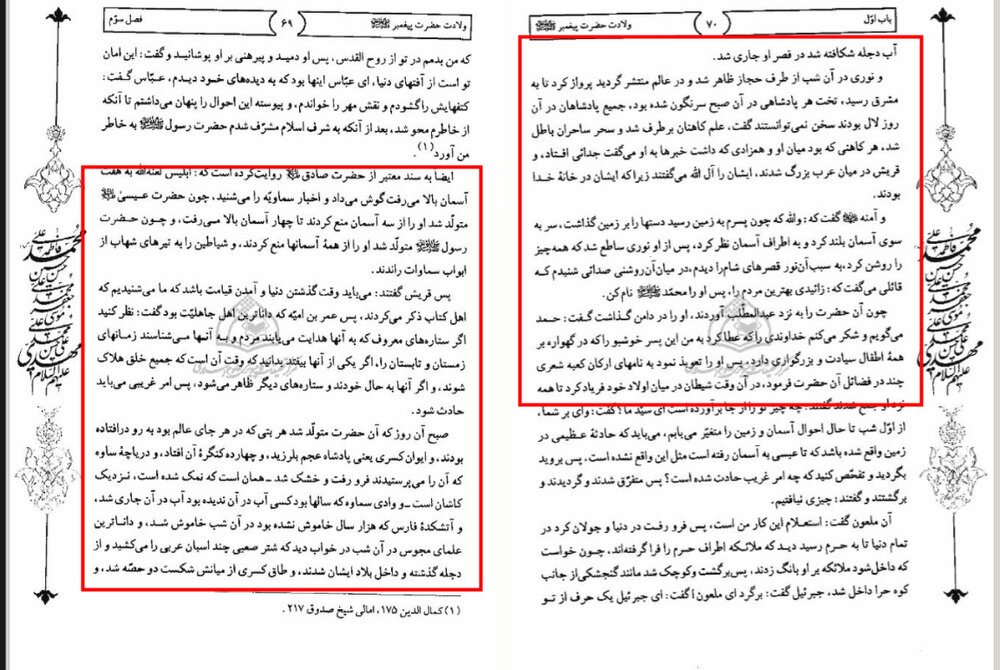 ولادت حضرت پیغمبر ﷺ
۶۹
فصل سوّم
که من بدمم در تو از روح القدس، پس او دمید و پیرهنی بر او پوشانید و گفت: این امان
تو است از آفتهای دنیا، ای عبّاس اینها بود که به دیده‌های خود دیدم، عبّاس گفت:
کتفهایش را گشودم و نقش مهر را خواندم، و پیوسته این احوال را پنهان می‌داشتم تا آنکه
از خاطرم محو شد، بعد از آنکه به شرف اسلام مشرّف شدم حضرت رسول ﷺ به خاطر
من آورد (۱).
ایضا به سند معتبر از حضرت صادق روایت کرده است که: ابلیس لعنه‌الله به هفت
آسمان بالا می‌رفت گوش می‌داد و اخبار سماویّه را می‌شنید، چون حضرت عیسیٰ
متولّد شد او را از سه آسمان منع کردند تا چهار آسمان بالا می‌رفت، و چون حضرت
رسول ﷺ متولّد شد او را از همهٔ آسمانها منع کردند، و شیاطین را به تیرهای شهاب از
ابواب سماوات راندند.
پس قریش گفتند: می‌باید وقت گذشتن دنیا و آمدن قیامت باشد که ما می‌شنیدیم که
اهل کتاب ذکر می‌کردند، پس عمر بن امیّه که داناترین اهل جاهلیّت بود گفت: نظر کنید
اگر ستاره‌های معروف که به آنها هدایت می‌یابند مردم و به آنها می‌شناسند زمانهای
زمستان و تابستان را، اگر یکی از آنها بیفتد بدانید که وقت آن است که جمیع خلق هلاک
شوند، و اگر آنها به حال خودند و ستاره‌های دیگر ظاهر می‌شود، پس امر غریبی باید
حادث شود.
صبح آن روز که آن حضرت متولّد شد هر بتی که در هر جای عالم بود به رو درافتاده
بودند، و ایوان کسری یعنی پادشاه عجم بلرزید، و چهارده کنگرهٔ آن افتاد، و دریاچهٔ ساوه
که آن را می‌پرستیدند فرو رفت و خشک شد - همان است که نمک شده است، نزدیک
کاشان است - و وادی سماوه که سالها بود کسی آب در آن ندیده بود آب در آن جاری شد،
و آتشکدهٔ فارس که هزار سال خاموش نشده بود در آن شب خاموش شد، و داناترین
علمای مجوس در آن شب در خواب دید که شتر صعبی چند اسبان عربی را می‌کشید و از
دجله گذشته و داخل بلاد ایشان شدند، و طاق کسری از میانش شکست دو حصّه شد، و
(۱) کمال الدین ۱۷۵، امالی شیخ صدوق ۲۱۷.
باب اوّل
۷۰
ولادت حضرت پیغمبر ﷺ
آب دجله شکافته شد در قصر او جاری شد.
و نوری در آن شب از طرف حجاز ظاهر شد و در عالم منتشر گردید پرواز کرد تا به
مشرق رسید، تخت هر پادشاهی در آن صبح سرنگون شده بود، جمیع پادشاهان در آن
روز لال بودند سخن نمی‌توانستند گفت، علم کاهنان برطرف شد و سحر ساحران باطل
شد، هر کاهنی که بود میان او و همزادی که داشت خبرها به او می‌گفت جدائی افتاد، و
قریش در میان عرب بزرگ شدند، ایشان را آل الله می‌گفتند زیرا که ایشان در خانهٔ خدا
بودند.
و آمنه گفت که: والله که چون پسرم به زمین رسید دستها را بر زمین گذاشت، سر به
سوی آسمان بلند کرد و به اطراف آسمان نظر کرد، پس از او نوری ساطع شد که همه‌چیز
را روشن کرد، به سبب آن نور قصرهای شام را دیدم، در میان آن روشنی صدائی شنیدم که
قائلی می‌گفت که: زائیدی بهترین مردم را، پس او را محمّد ﷺ نام کن.
چون آن حضرت را به نزد عبدالمطّلب آوردند، او را در دامن گذاشت گفت: حمد
می‌گویم و شکر می‌کنم خداوندی را که عطا کرد به من این پسر خوشبو را که در گهواره بر
همهٔ اطفال سیادت و بزرگواری دارد، پس او را تعویذ نمود به نامهای ارکان کعبه شعری
چند در فضائل آن حضرت فرمود، در آن وقت شیطان در میان اولاد خود فریاد کرد تا همه
نزد او جمع شدند گفتند: چه چیز تو را از جا برآورده است ای سیّد ما؟ گفت: وای بر شما،
از اوّل شب تا حال احوال آسمان و زمین را متغیّر می‌یابم، می‌باید که حادثهٔ عظیمی در
زمین واقع شده باشد که تا عیسی به آسمان رفته است مثل این واقع نشده است، پس بروید
بگردید و تفحّص کنید که چه امر غریب حادث شده است؟ پس متفرّق شدند و گردیدند و
برگشتند و گفتند: چیزی نیافتیم.
آن ملعون گفت: استعلام این کار من است، پس فرو رفت در دنیا و جولان کرد در
تمام دنیا تا به حرم رسید دید که ملائکه اطراف حرم را فرا گرفته‌اند، چون خواست
که داخل شود ملائکه بر او بانگ زدند، پس برگشت و کوچک شد مانند گنجشکی از جانب
کوه حرا داخل شد، جبرئیل گفت: برگرد ای ملعون! گفت: ای جبرئیل یک حرف از تو